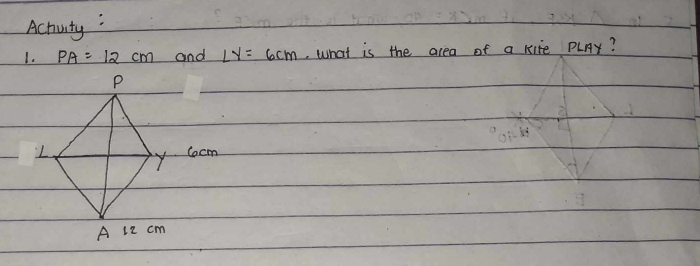 Activity :
1. PA = 12 cm and LY = 6cm. What is the area of a kite PLAY?
P
L Y 6cm
A 12 cm